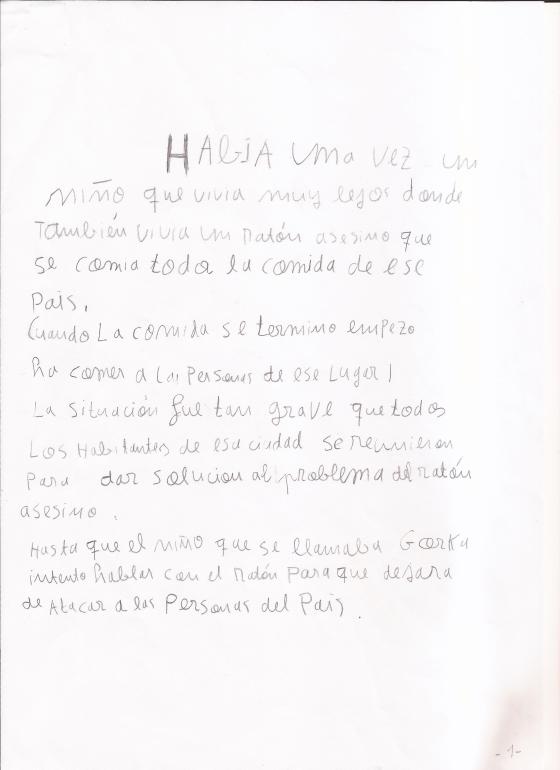 HABIA una vez un
niño que vivia muy lejos donde
también vivia un ratón asesino que
se comia toda la comida de ese
país.
Cuando La comida se termino empezo
ha comer a las personas de ese lugar
La situación fue tan grave que todos
Los Habitantes de esa ciudad se reunieron
para dar solucion al problema del ratón
asesino.
Hasta que el niño que se llamaba Gorka
intento hablar con el ratón para que dejara
de Atacar a las Personas del País.
-1-